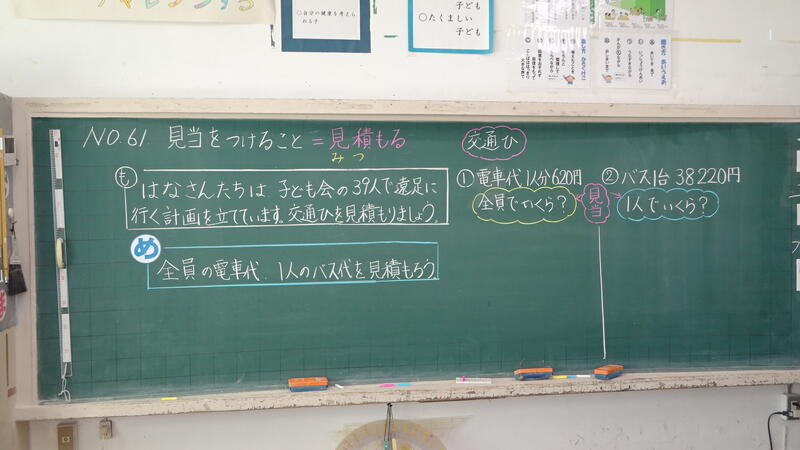 チャレンジする
○自分の健康を考えられる子
子ども
○たくましい
子ども
NO.61. 見当をつけること＝見積もる
みつ
も はなさんたちは、子ども会の39人で遠足に
行く計画を立てています。交通ひを見積もりましょう。
め 全員の電車代、1人のバス代を見積もろう。
交通ひ
①電車代 1人分620円
全員でいくら？
見当
②バス1台 38220円
1人でいくら？